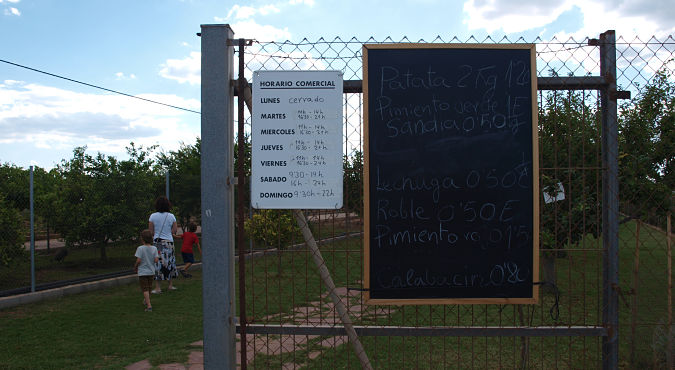 HORARIO COMERCIAL
LUNES cerrado
MARTES 11h - 14h
16'30 - 24h
MIERCOLES 11h - 14h
16'30 - 24h
JUEVES 11h - 14h
16'30 - 24h
VIERNES 11h - 14h
16'30 - 24h
SABADO 9'30 - 14h
16h - 24h
DOMINGO 9'30h - 22h
Patata 2 Kg
Pimiento verde 1E
Sandia 0'50
Lechuga 0'50
Roble 0'50E
Pimiento
Calabacin 0'80